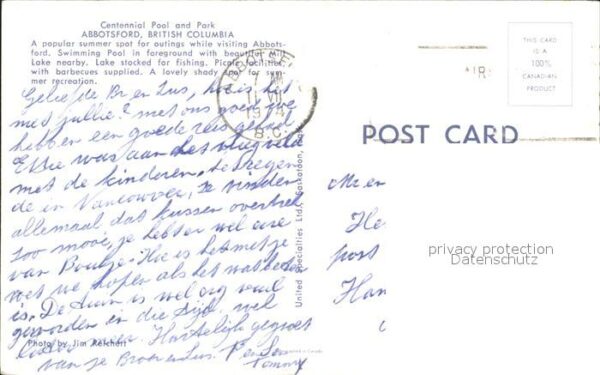 Centennial Pool and Park
ABBOTSFORD, BRITISH COLUMBIA
A popular summer spot for outings while visiting Abbots-
ford. Swimming Pool in foreground with beautiful Mill
Lake nearby. Lake stocked for fishing. Picnic facilities
with barbecues supplied. A lovely shady spot for sum-
mer recreation.
Geliefde Br en Zus, hoe is het
met jullie? met ons goed we
hebben een goede reis gehad
Elsie was aan het vliegveld
met de kinderen,
de in Vancouver, ze vinden
allemaal dat kussen overtrek
zoo mooi, je hebt er wel eere
van Hoe is het met je
wij hopen als het wat beter
is. De tuin is wel erg vuil
geworden in die tijd. wel
Hartelijk gegroet
van je Broer en Zus.
Tommy
Photo by Jim Reichert
United Specialties Ltd., Saskatoon,
ABBOTSFORD
VII
B.C.
AIR
THIS CARD
IS A
100%
CANADIAN
PRODUCT
POST CARD
Mr en
He
post
Han
privacy protection
Datenschutz